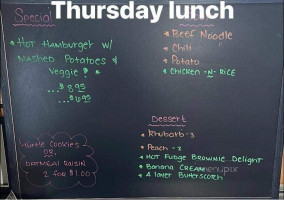 Thursday lunch
Special
* Hot Hamburger w/
Mashed Potatoes &
Veggie
$8.95
$6.95
Turtle Cookies
OR
OATMEAL RAISIN
2 FOR $1.00
* Beef Noodle
* Chili
* Potato
* CHICKEN -N- RICE
Dessert
* Rhubarb -3
* Peach -2
* HOT FUDGE BROWNIE Delight
* Banana CREAM
* 4 layer BUTTERSCOTCH